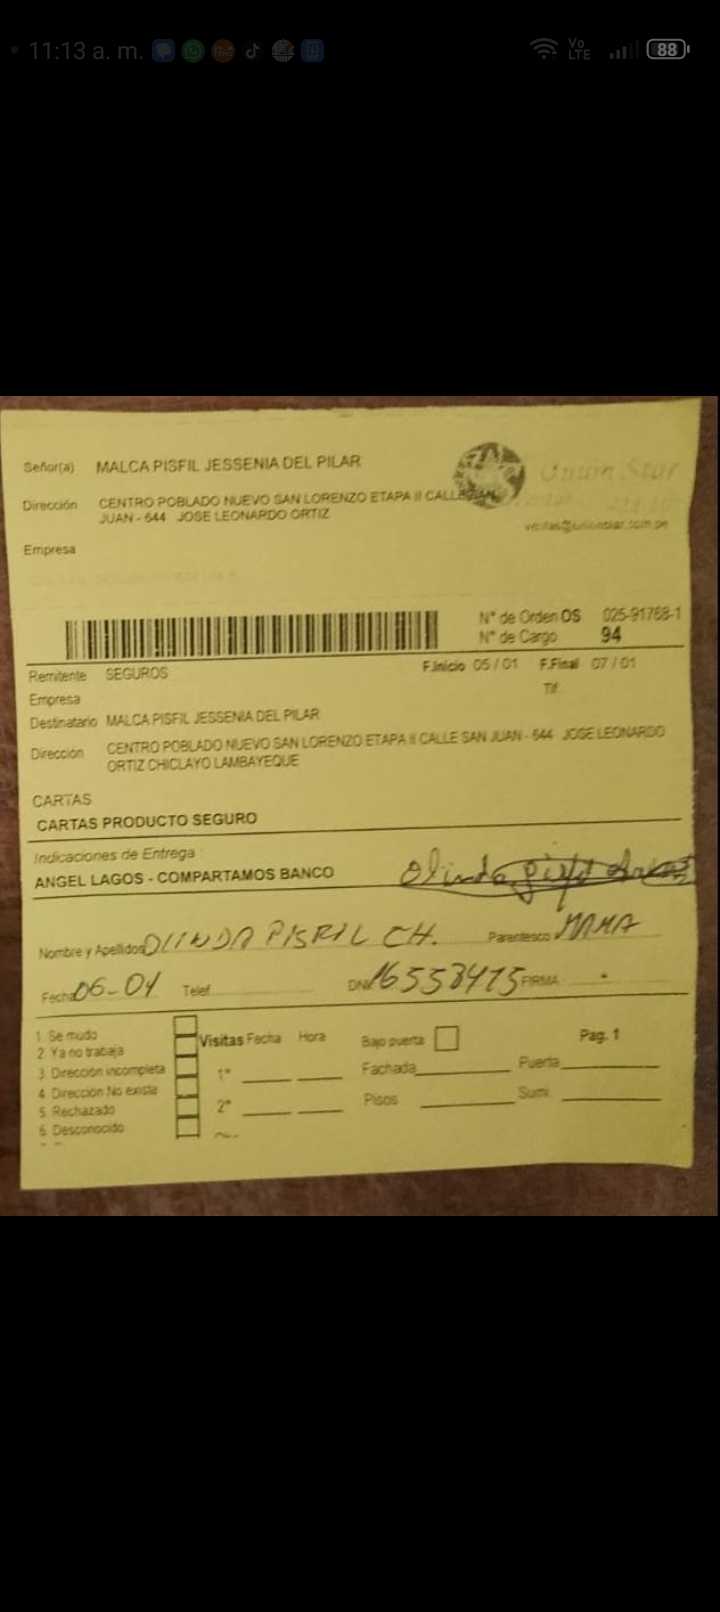 11:13 a. m.
Vo
LTE
88
Señor(a) MALCA PISFIL JESSENIA DEL PILAR
Dirección CENTRO POBLADO NUEVO SAN LORENZO ETAPA II CALLE SAN
JUAN - 644 JOSE LEONARDO ORTIZ
Union Star
ventas@unionstar.com.pe
Empresa
N° de Orden OS 025-91768-1
N° de Cargo 94
Remitente SEGUROS F.Inicio 05 / 01 F.Final 07 / 01
Empresa Tlf.
Destinatario MALCA PISFIL JESSENIA DEL PILAR
Dirección CENTRO POBLADO NUEVO SAN LORENZO ETAPA II CALLE SAN JUAN - 644 JOSE LEONARDO
ORTIZ CHICLAYO LAMBAYEQUE
CARTAS
CARTAS PRODUCTO SEGURO
Indicaciones de Entrega
ANGEL LAGOS - COMPARTAMOS BANCO Olinda
Nombre y Apellidos OLINDA PISFIL CH. Parentesco MAMA
Fecha 06-01 Telef. DNI 16558475 FIRMA
1. Se mudo
2. Ya no trabaja
3. Dirección incompleta
4. Dirección No existe
5. Rechazado
6. Desconocido
Visitas Fecha Hora Bajo puerta Pag. 1
1° Fachada Puerta
2° Pisos Sumi.